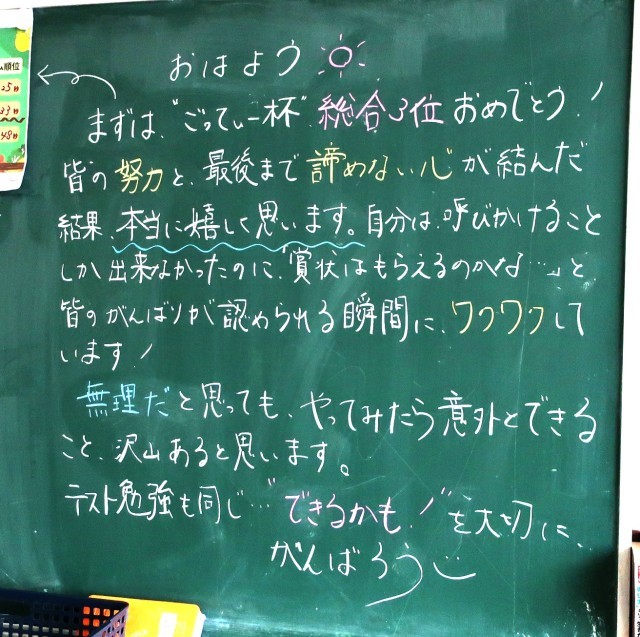 おはよう
まずは、"ごってぃー杯" 総合3位おめでとう!
皆の努力と、最後まで諦めない心が結んだ
結果、本当に嬉しく思います。自分は、呼びかけること
しか出来なかったのに、「賞状はもらえるのかな…」と、
皆のがんばりが認められる瞬間に、ワクワクして
います!
無理だと思っても、やってみたら意外とできる
こと、沢山あると思います。
テスト勉強も同じ…"できるかも!"を大切に、
がんばろう
順位